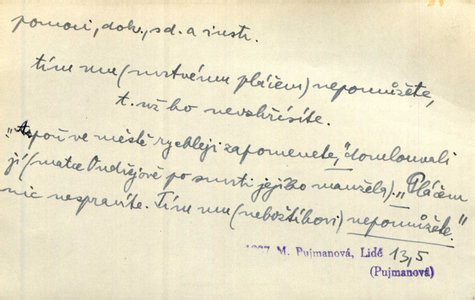 pomoci, dok., sd. a instr.
tím mu (mrtvému pláčem) nepomůžete,
t. už ho nevzkřísíte.
"Aspoň ve městě rychleji zapomenete," domlouvali
jí (matce Ondřejově po smrti jejího manžela). "Pláčem
nic nespravíte. Tím mu (nebožtíkovi) nepomůžete."
1937 M. Pujmanová, Lidé 13,5
(Pujmanová)